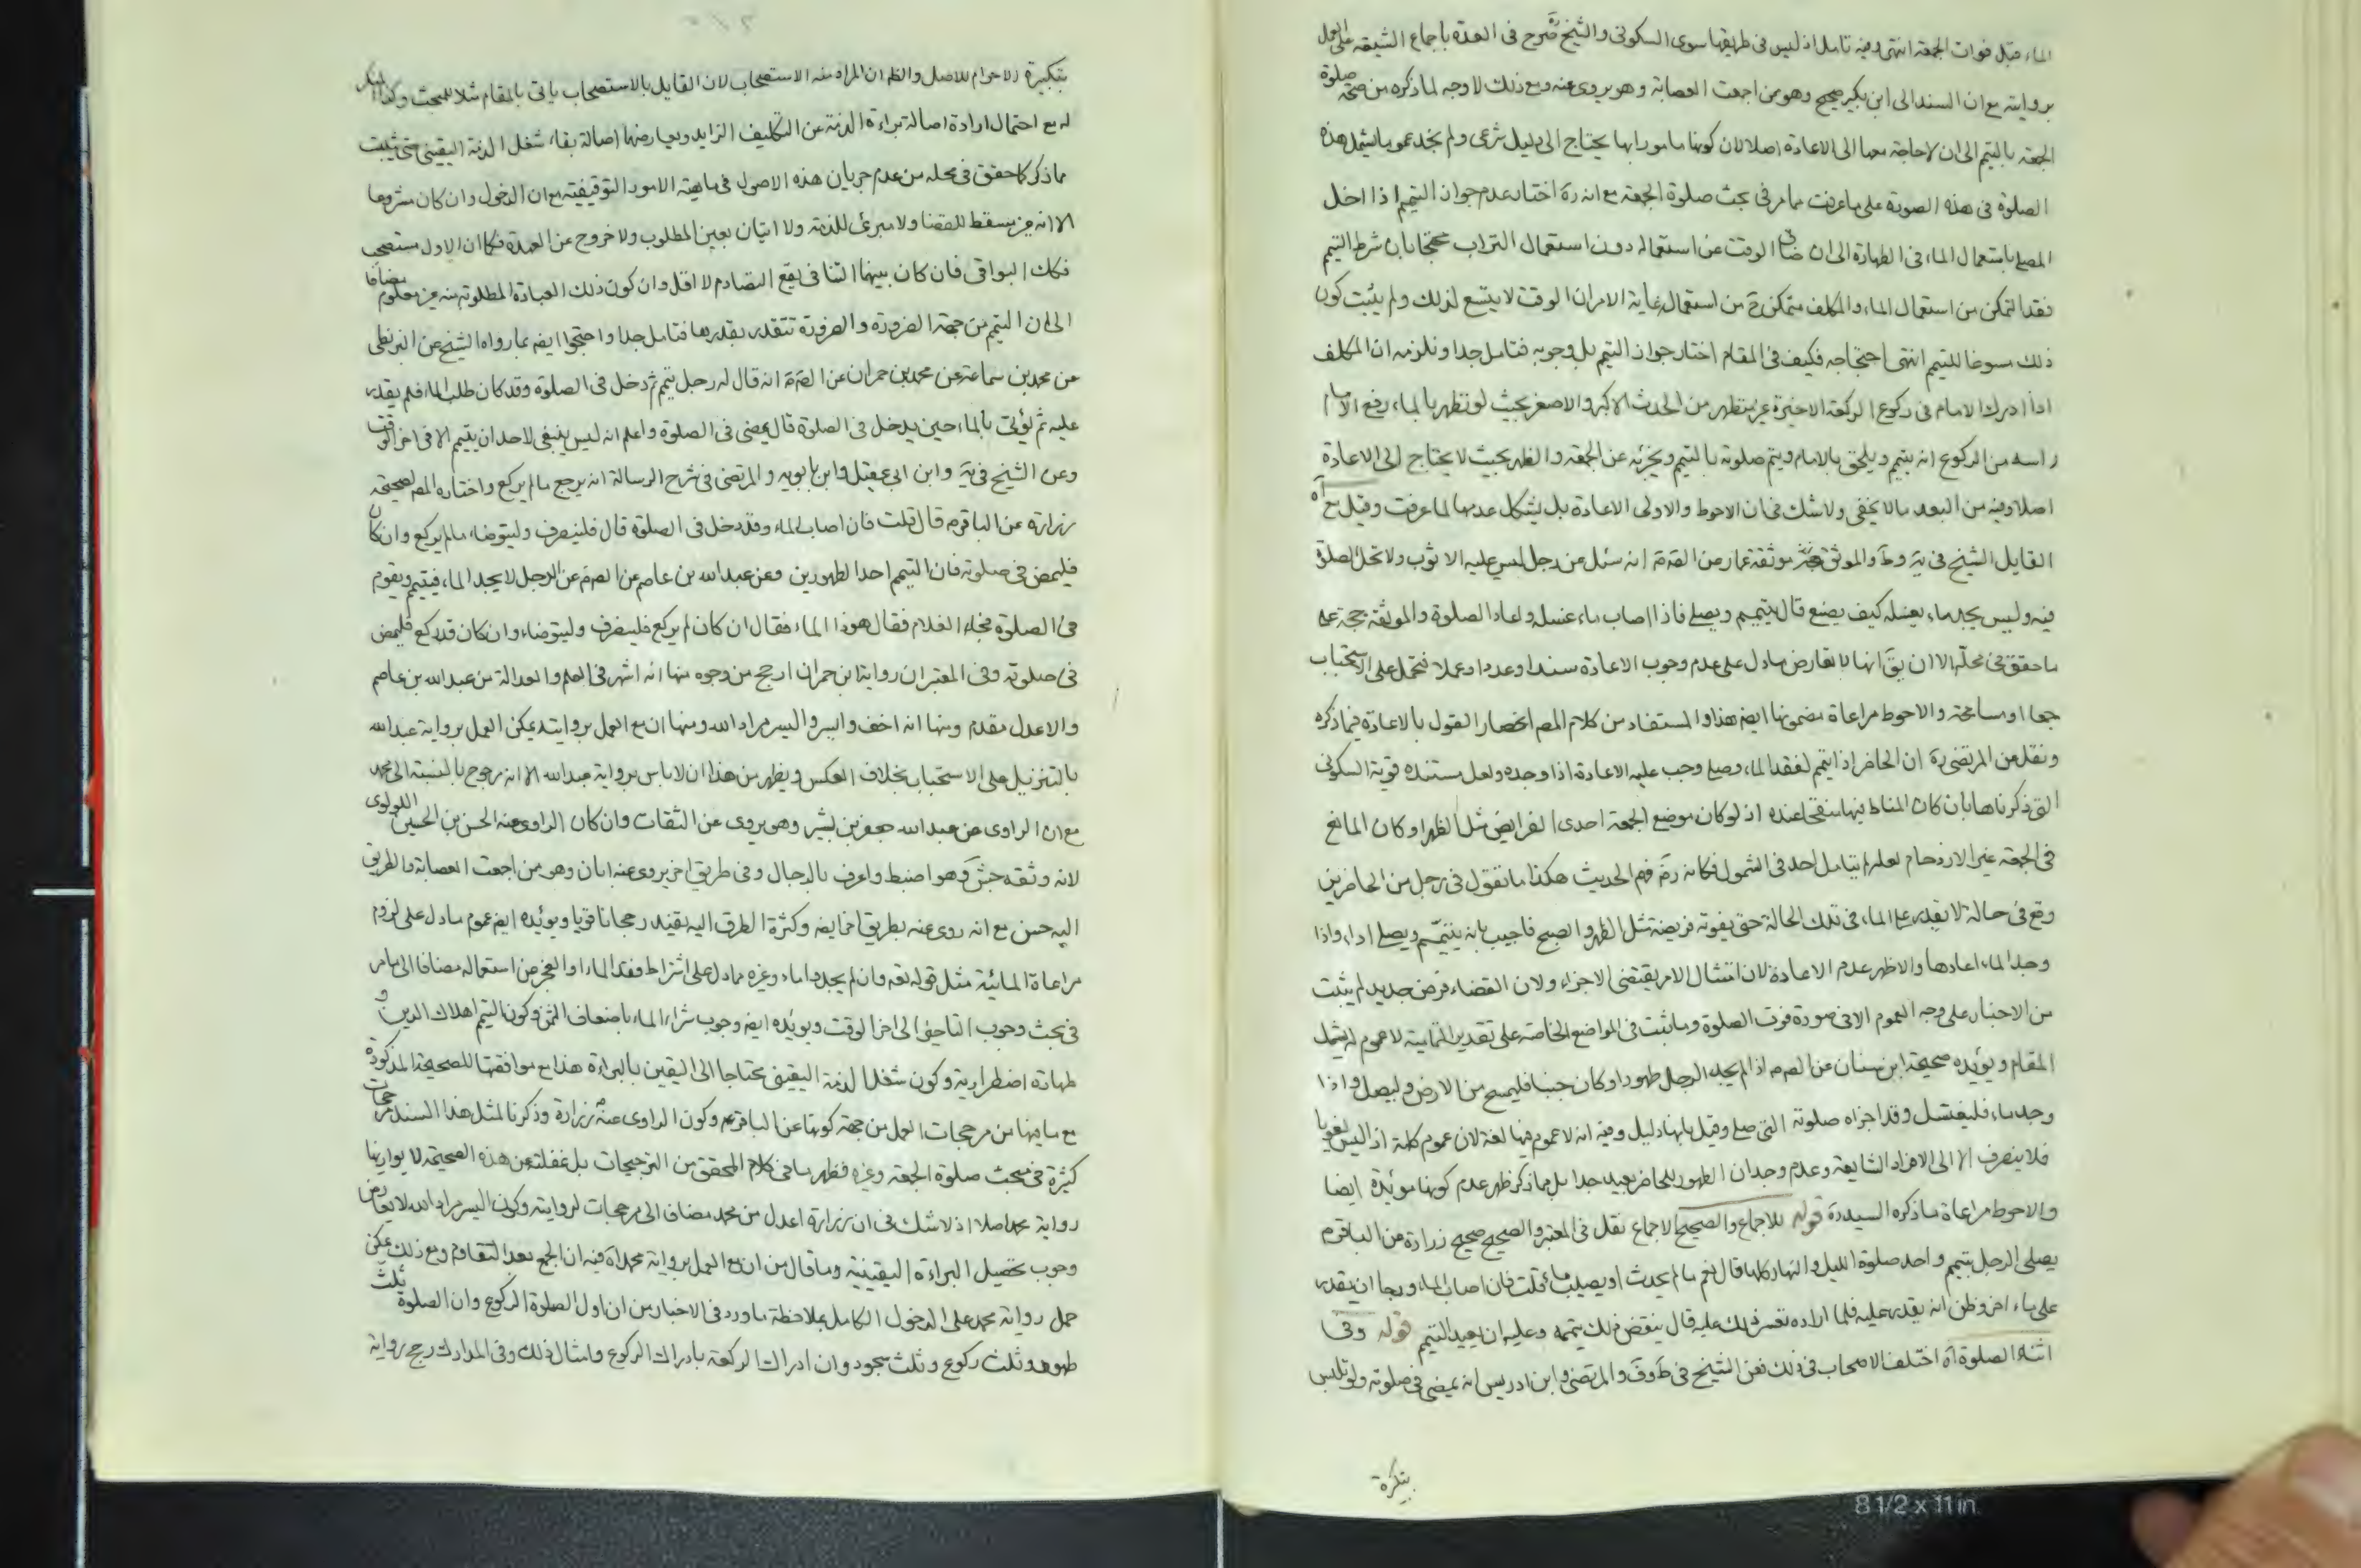 الماء قبل فوات الجمعة انتهى وفيه تامل اذ ليس فى طريقها سوى السكونى والشيخ ره صرح فى العدة باجماع الشيعة على العمل
بروايته مع ان السند الى ابن بكير صحيح وهو من اجمعت العصابة وهو يروى عنه ومع ذلك لا وجه لما ذكره من صحة صلوة
الجمعة بالتيمم الى ان لا حاجة معها الى الاعادة اصلا لان كونها مامورا بها يحتاج الى دليل شرعى ولم نجد عموما يشمل هذه
الصلوة فى هذه الصورة على ما عرفت مما مر فى بحث صلوة الجمعة مع انه ره اختار عدم جواز التيمم اذا اخل
المصلى باستعمال الماء فى الطهارة الى ان ضاق الوقت عن استعماله دون استعمال التراب محتجا بان شرط التيمم
فقد التمكن من استعمال الماء والمكلف متمكن ح من استعماله غاية الامر ان الوقت لا يتسع لذلك ولم يثبت كون
ذلك مسوغا للتيمم انتهى احتجاجه فكيف فى المقام اختار جواز التيمم بل وجوبه فتامل جدا ويلزمه ان المكلف
اذا ادرك الامام فى ركوع الركعة الاخيرة غير متطهر من الحدث الاكبر والاصغر بحيث لو تطهر بالماء رفع الامام
راسه من الركوع انه يتيمم ويلحق بالامام ويتم صلوته بالتيمم ويجزئه عن الجمعة والظهر بحيث لا يحتاج الى الاعادة
اصلا وفيه من البعد ما لا يخفى ولا شك فى ان الاحوط والاولى الاعادة بل يشكل عدمها لما عرفت وقيل مع اه
القايل الشيخ فى ية وط والموثق موثقة عمار عن الصم انه سئل عن رجل ليس عليه الا ثوب ولا تحل الصلوة
فيه وليس يجد ماء يغسله كيف يصنع قال يتيمم ويصلى فاذا اصاب ماء غسله واعاد الصلوة والموثقة حجة على
ما حقق فى محله الا ان يق انها لا تعارض ما دل على عدم وجوب الاعادة سندا وعددا وعملا فتحمل على الاستحباب
جمعا او مسامحة والاحوط مراعاة مضمونها ايضه هذا والمستفاد من كلام المصـ انحصار القول بالاعادة فيما ذكره
ونقل عن المرتضى ره ان الحاضر اذا تيمم لفقد الماء وصلى وجب عليه الاعادة اذا وجده ولعل مستنده قوية السكونى
التى ذكرناها بان كان المناط فيها منقحا عنده اذ لو كان موضع الجمعة احدى الفرايض مثل الظهر او كان المانع
فى الجمعة غير الازدحام لعله لم يتامل احد فى الشمول فكانه ره فهم الحديث هكذا ما تقول فى رجل من الحاضرين
وقع فى حالة لا يقدر على الماء فى تلك الحالة حتى يفوته فريضة مثل الظهر والصبح فاجيب بانه يتيمم ويصلى اداء واذا
وجد الماء اعادها والاظهر عدم الاعادة لان امتثال الامر يقتضى الاجزاء ولان القضاء فرض جديد لم يثبت
من الاخبار على وجه العموم الا فى صورة فوت الصلوة وما ثبت فى المواضع الخاصة على تقدير التمامية لا عموم له يشمل
المقام ويؤيده صحيحة ابن سنان عن الصم اذا لم يجد الرجل طهورا وكان جنبا فليمسح من الارض وليصل واذا
وجد ماء فليغتسل وقد اجزاه صلوته التى صلى وقيل بانها دليل وفيه انه لا عموم فيها لغة لان عموم كلمة اذا ليس لغويا
فلا ينصرف الا الى الافراد الشايعة وعدم وجدان الطهور للحاضر بعيد جدا بل مما ذكر ظهر عدم كونها مؤيدة ايضا
والاحوط مراعاة ما ذكره السيد ره قوله للاجماع والصحيح الاجماع نقل فى المعتبر والصحيح صحيح زرارة عن الباقر م
يصلى الرجل بتيمم واحد صلوة الليل والنهار كلها قال نعم ما لم يحدث او يصيب ماء قلت فان اصاب الماء ورجا ان يقدر
على ماء اخر وظن انه يقدر عليه فلما اراده تعسر ذلك عليه قال ينقض ذلك تيممه وعليه ان يعيد التيمم قوله وفى
اثناء الصلوة اه اختلف الاصحاب فى ذلك فعن الشيخ فى ط وف والمرتضى وابن ادريس انه يمضى فى صلوته ولو تلبس
بتكبيرة
بتكبيرة الاحرام للاصل والظ ان المراد منه الاستصحاب لان القايل بالاستصحاب ياتى بالمقام مثلا للبحث وكذا المنكر
له مع احتمال ارادة اصالة براءة الذمة عن التكليف الزايد ويعارضها اصالة بقاء شغل الذمة اليقينى حتى يثبت
ما ذكر كما حقق فى محله من عدم جريان هذه الاصول فى ماهية الامور التوقيفية مع ان الدخول وان كان مشروعا
الا انه غير مسقط للقضا ولا مبرئ للذمة ولا اتيان بعين المطلوب ولا خروج عن العهدة فكما ان الاول مستصحب
فكك البواقى فان كان بينهما التنافى يقع التصادم لا اقل وان كون ذلك العبادة المطلوبة منه غير معلوم مضافا
الى ان التيمم من جهة الضرورة والضرورة تتقدر بقدرها فتامل جدا واحتجوا ايضه بما رواه الشيخ عن البزنطى
عن محمد بن سماعة عن محمد بن حمران عن الصم انه قال له رجل تيمم ثم دخل فى الصلوة وقد كان طلب الماء فلم يقدر
عليه ثم يؤتى بالماء حين يدخل فى الصلوة قال يمضى فى الصلوة واعلم انه ليس ينبغى لاحد ان يتيمم الا فى اخر الوقت
وعن الشيخ فى ية وابن ابى عقيل وابن بابويه والمرتضى فى شرح الرسالة انه يرجع ما لم يركع واختاره المصـ لصحيحة
زرارة عن الباقر م قال قلت فان اصاب الماء وقد دخل فى الصلوة قال فلينصرف وليتوضاء ما لم يركع وان كان
فليمض فى صلوته فان التيمم احد الطهورين وعن عبد الله بن عاصم عن الصم عن الرجل لا يجد الماء فيتيمم ويقوم
فى الصلوة فجاء الغلام فقال هوذا الماء فقال ان كان لم يركع فلينصرف وليتوضاء وان كان قد ركع فليمض
فى صلوته وفى المعتبر ان رواية ابن حمران ارجح من وجوه منها انه اشهر فى العلم والعدالة من عبد الله بن عاصم
والاعدل مقدم ومنها انه اخف وايسر واليسر مراد الله ومنها ان مع العمل بروايته يمكن العمل برواية عبد الله
بالتنزيل على الاستحباب بخلاف العكس ويظهر من هذا ان لا باس برواية عبد الله الا انه مرجوح بالنسبة الى محمد
مع ان الراوى عن عبد الله جعفر بن بشير وهو يروى عن الثقات وان كان الراوى عنه الحسن بن الحسين اللؤلؤى
لانه وثقه جش وهو اضبط واعرف بالرجال وفى طريق اخر يروى عنه ابان وهو من اجمعت العصابة والطريق
اليه حسن مع انه روى عنه بطريق اخر ايضه وكثرة الطرق اليه يفيد رجحانا قويا ويؤيده ايضه عموم ما دل على لزوم
مراعاة المائية مثل قوله تعه وان لم يجدوا ماء وغيره مما دل على اشتراط فقد الماء او العجز من استعماله مضافا الى ما مر
فى بحث وجوب التاخير الى اخر الوقت ويؤيده ايضه وجوب شراء الماء باضعاف الثمن وكون التيمم اهلاك الدين و
طهارة اضطرارية وكون شغل الذمة اليقينى محتاجا الى اليقين بالبراءة هذا مع موافقتها للصحيحة المذكورة
مع ما فيها من مرجحات العمل من جهة كونها عن الباقر م وكون الراوى عنه زرارة وذكرنا لمثل هذا السند مرجحات
كثيرة فى مبحث صلوة الجمعة وغيره فظهر ما فى كلام المحقق من الترجيحات بل غفلته عن هذه الصحيحة لا يوازيها
رواية محمد اصلا اذ لا شك فى ان زرارة اعدل من محمد مضاف الى مرجحات لروايته وكون اليسر مراد الله لا يعارض
وجوب تحصيل البراءة اليقينية وما قال من ان مع العمل برواية محمد اه فيه ان الجمع بعد التقاوم ومع ذلك يمكن
حمل رواية محمد على الدخول الكامل بملاحظة ما ورد فى الاخبار من ان اول الصلوة الركوع وان الصلوة ثلث
طهور وثلث ركوع وثلث سجود وان ادراك الركعة بادراك الركوع وامثال ذلك وفى المدارك رجح رواية
8 1/2 x 11 in.